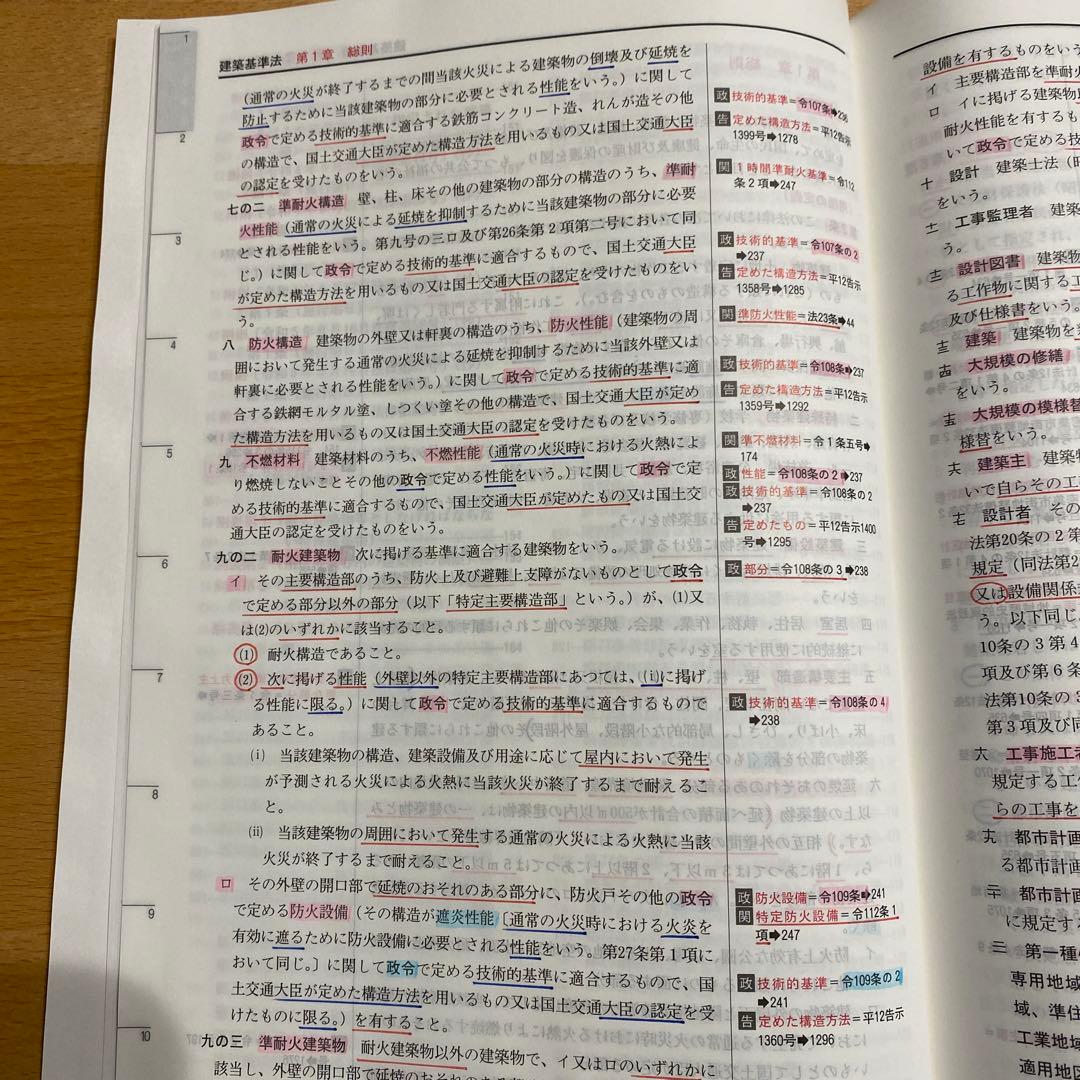 建築基準法 第1章 総則
(通常の火災が終了するまでの間当該火災による建築物の倒壊及び延焼を
防止するために当該建築物の部分に必要とされる性能をいう。)に関して
政令で定める技術的基準に適合する鉄筋コンクリート造、れんが造その他
の構造で、国土交通大臣が定めた構造方法を用いるもの又は国土交通大臣
の認定を受けたものをいう。
七の二 準耐火構造 壁、柱、床その他の建築物の部分の構造のうち、準耐
火性能(通常の火災による延焼を抑制するために当該建築物の部分に必要
とされる性能をいう。第九号の三ロ及び第26条第2項第二号において同
じ。)に関して政令で定める技術的基準に適合するもので、国土交通大臣
が定めた構造方法を用いるもの又は国土交通大臣の認定を受けたものをい
う。
八 防火構造 建築物の外壁又は軒裏の構造のうち、防火性能(建築物の周
囲において発生する通常の火災による延焼を抑制するために当該外壁又は
軒裏に必要とされる性能をいう。)に関して政令で定める技術的基準に適
合する鉄網モルタル塗、しつくい塗その他の構造で、国土交通大臣が定め
た構造方法を用いるもの又は国土交通大臣の認定を受けたものをいう。
九 不燃材料 建築材料のうち、不燃性能(通常の火災時における火熱によ
り燃焼しないことその他の政令で定める性能をいう。)に関して政令で定
める技術的基準に適合するもので、国土交通大臣が定めたもの又は国土交
通大臣の認定を受けたものをいう。
九の二 耐火建築物 次に掲げる基準に適合する建築物をいう。
イ その主要構造部のうち、防火上及び避難上支障がないものとして政令
で定める部分以外の部分(以下「特定主要構造部」という。)が、(1)又
は(2)のいずれかに該当すること。
(1) 耐火構造であること。
(2) 次に掲げる性能(外壁以外の特定主要構造部にあつては、(i)に掲げ
る性能に限る。)に関して政令で定める技術的基準に適合するもので
あること。
(i) 当該建築物の構造、建築設備及び用途に応じて屋内において発生
が予測される火災による火熱に当該火災が終了するまで耐えるこ
と。
(ii) 当該建築物の周囲において発生する通常の火災による火熱に当該
火災が終了するまで耐えること。
ロ その外壁の開口部で延焼のおそれのある部分に、防火戸その他の政令
で定める防火設備(その構造が遮炎性能〔通常の火災時における火炎を
有効に遮るために防火設備に必要とされる性能をいう。第27条第1項に
おいて同じ。〕に関して政令で定める技術的基準に適合するもので、国
土交通大臣が定めた構造方法を用いるもの又は国土交通大臣の認定を受
けたものに限る。)を有すること。
九の三 準耐火建築物 耐火建築物以外の建築物で、イ又はロのいずれかに
該当し、外壁の開口部で延焼のおそれのある部分に
政 技術的基準=令107条➡236
告 定めた構造方法=平12告示
1399号➡1278
関 1時間準耐火基準=令112
条2項➡247
政 技術的基準=令107条の2
➡237
告 定めた構造方法=平12告示
1358号➡1285
関 準防火性能=法23条➡44
政 技術的基準=令108条➡237
告 定めた構造方法=平12告示
1359号➡1292
関 準不燃材料=令1条五号➡
174
政 性能=令108条の2➡237
政 技術的基準=令108条の2
➡237
告 定めたもの=平12告示1400
号➡1295
政 部分=令108条の3➡238
政 技術的基準=令108条の4
➡238
政 防火設備=令109条➡241
関 特定防火設備=令112条1
項➡247
政 技術的基準=令109条の2
➡241
告 定めた構造方法=平12告示
1360号➡1296
1
2
3
4
5
6
7
8
9
10
設備を有するものをいう
主要構造部を準耐火
イ
ロ イに掲げる建築物
耐火性能を有するも
いて政令で定める技
十 設計 建築士法(昭
をいう。
十一 工事監理者 建築
う。
十二 設計図書 建築物
る工作物に関する工
及び仕様書をいう。
十三 建築 建築物を
十四 大規模の修繕
をいう。
十五 大規模の模様替
様替をいう。
十六 建築主 建築物
いで自らその工事
十七 設計者 その
法第20条の2第
規定(同法第2
又は設備関係
う。以下同じ
10条の3第4
項及び第6条
法第10条の3
第3項及び同
十八 工事施工者
規定する工
らの工事を
十九 都市計画
る都市計画
二十 都市計画
に規定する
二十一 第一種
専用地域
域、準住
工業地域
適用地区